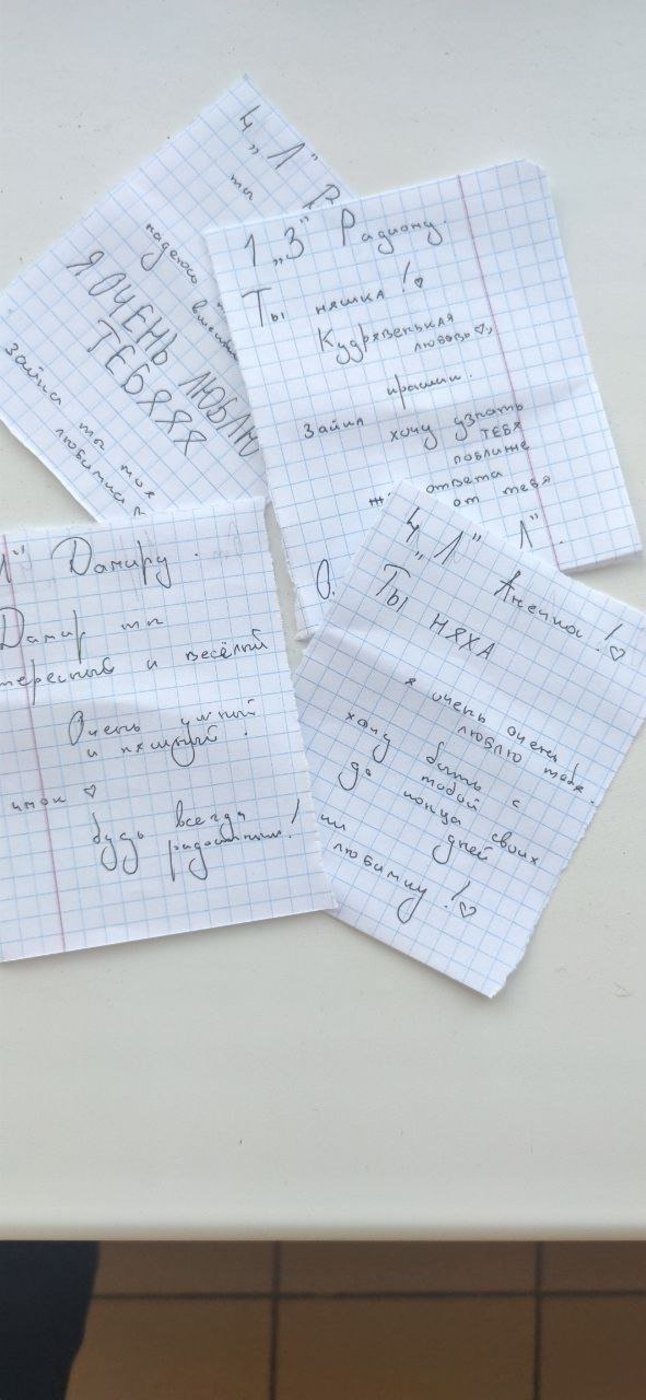 4 „Л"
ты
надеюсь
вместе
Я ОЧЕНЬ ЛЮБЛЮ
ТЕБЯЯЯ
Зайка ты моя
любимая
1 „З" Радиону.
Ты няшка!♡
Кудрявенькая
любовь♡,,
крашик.
Зайка хочу узнать
ТЕБЯ
поближе
ответа
от тебя
Л".
Л" Дамиру.
Дамир ты
тересный и весёлый
Очень умный
и няшный.
чмок ♡
будь всегда
радостным!
4 „Л" Анечка!♡
Ты НЯХА
я очень очень
люблю тебя.
хочу быть с
тобой
до конца своих
дней
любимку!♡